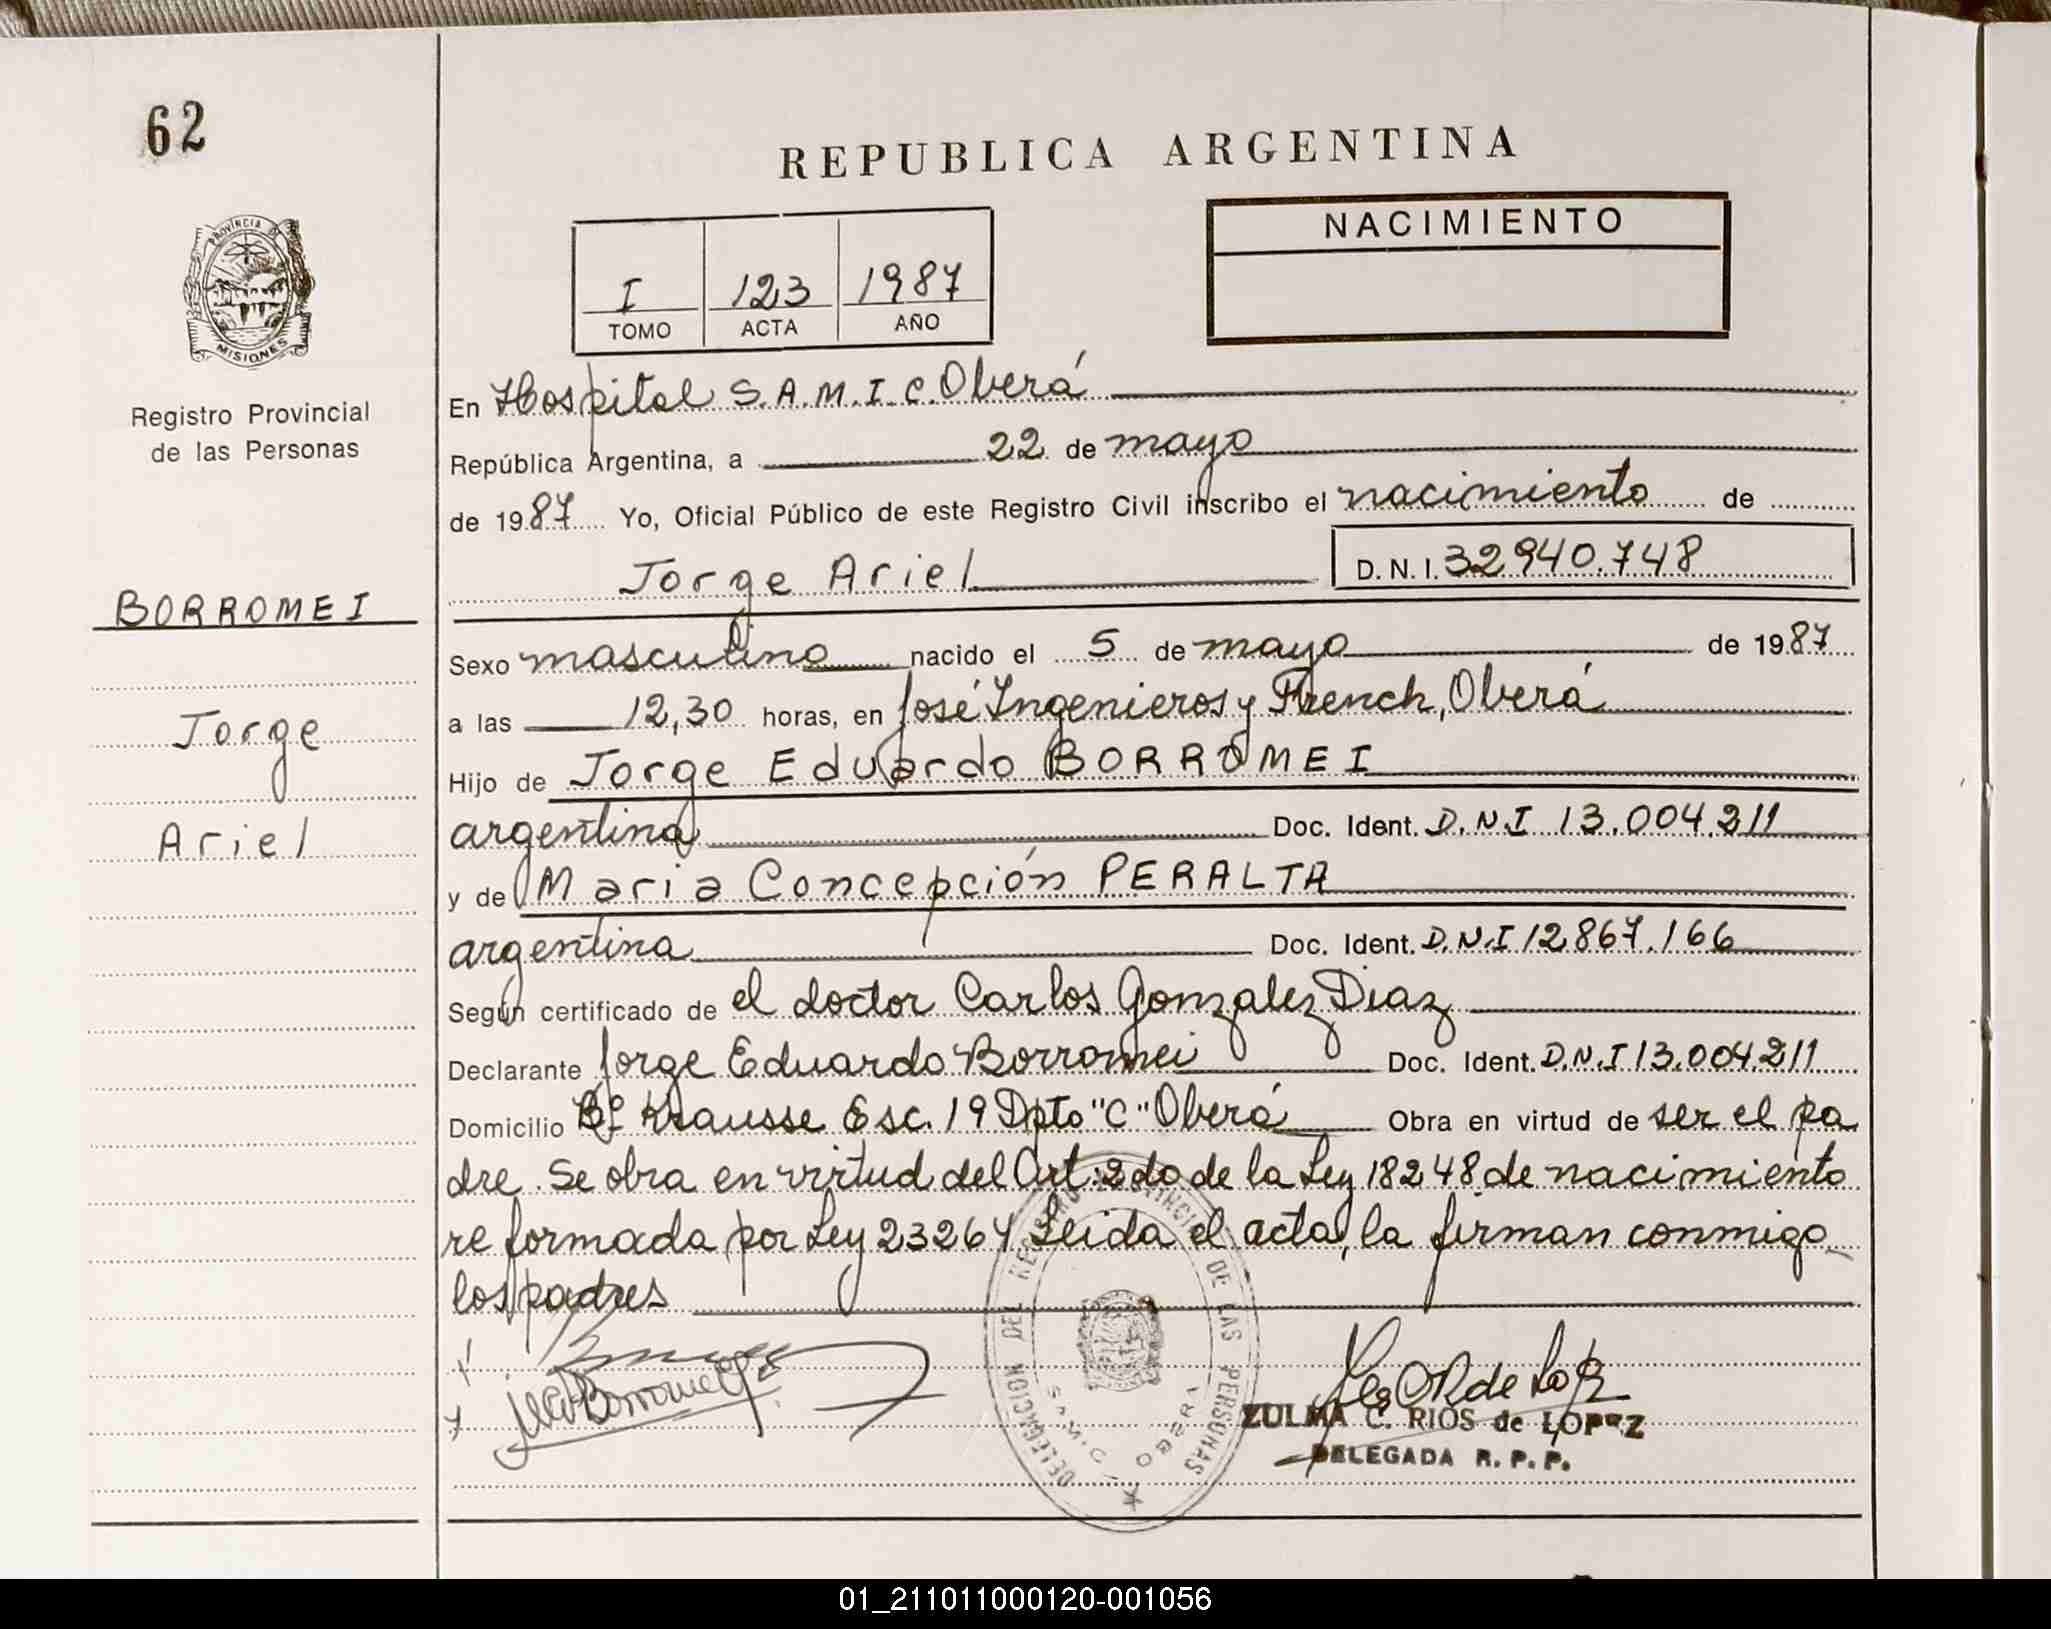 62
REPUBLICA ARGENTINA
NACIMIENTO
I 123 1987
TOMO ACTA AÑO
PROVINCIA DE
MISIONES
Registro Provincial
de las Personas
BORROMEI
Jorge
Ariel
En Hospital S.A.M.I.C. Oberá
República Argentina, a 22 de mayo
de 1987 Yo, Oficial Público de este Registro Civil inscribo el nacimiento de
Jorge Ariel D.N.I. 32940.748
Sexo masculino nacido el 5 de mayo de 1987
a las 12,30 horas, en José Ingenieros y French, Oberá
Hijo de Jorge Eduardo BORROMEI
argentina Doc. Ident. D.N.I 13.004.211
y de Maria Concepción PERALTA
argentina Doc. Ident. D.N.I 12.867.166
Según certificado de el doctor Carlos Gonzalez Diaz
Declarante Jorge Eduardo Borromei Doc. Ident. D.N.I 13.004.211
Domicilio Bº Krausse Esc. 19 Dpto "C" Oberá Obra en virtud de ser el pa
dre. Se obra en virtud del Art. 2do de la Ley 18248 de nacimiento
reformada por Ley 23264 Leida el acta, la firman conmigo
los padres
DELEGACION DEL REGISTRO PROVINCIAL DE LAS PERSONAS
ZULMA C. RIOS de LOPEZ
DELEGADA R. P. P.
01_211011000120-001056